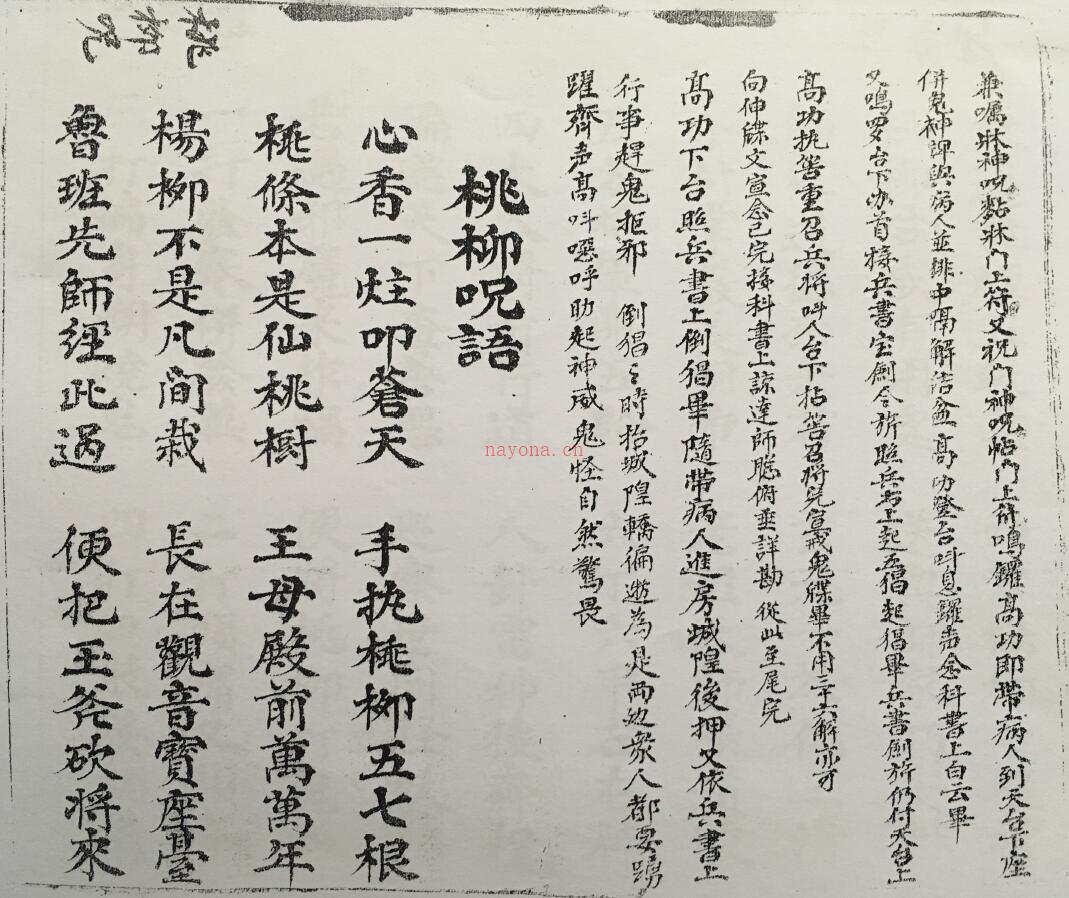 兼囑牀神咒黏牀門上符又祝門神咒帖門上符鳴鑼高功即帶病人到天台下座
併鬼神牌與病人並排中隔解結盆高功登台呌息鑼声念科書上白云畢
又鳴罗台下办首接兵書宝劍令旂照兵书上起五猖起猖畢兵書劍旂仍付天台上
高功执筶重召兵將呌人台下拈筶召將完宣戒鬼牒畢不用三十六解亦可
向伸牒文宣念已完接科書上諒達師聡俯垂詳勘從此至尾完
高功下台照兵書上倒猖畢隨带病人進房城隍後押又依兵書上
行事趕鬼拒邪 倒猖〻時抬城隍轎徧遊為是两边衆人都要踴
躍齊声高呌噁呼助起神威鬼怪自然驚畏
桃柳呪語
心香一炷叩蒼天 手执桃柳五七根
桃條本是仙桃樹 王母殿前萬萬年
楊柳不是凡间栽 長在觀音寶座臺
魯班先師經此过 便把玉斧砍将來
桃柳咒
nayona.cn